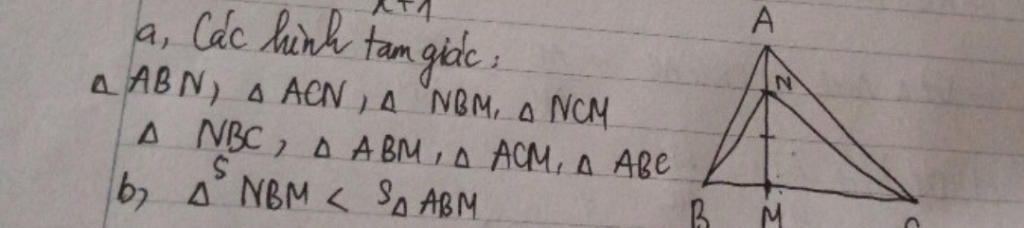 x+1
a, Các hình tam giác:
△ ABN, △ ACN, △ NBM, △ NCM
△ NBC, △ ABM, △ ACM, △ ABC
b, △ S NBM < S△ ABM
A
N
B M C